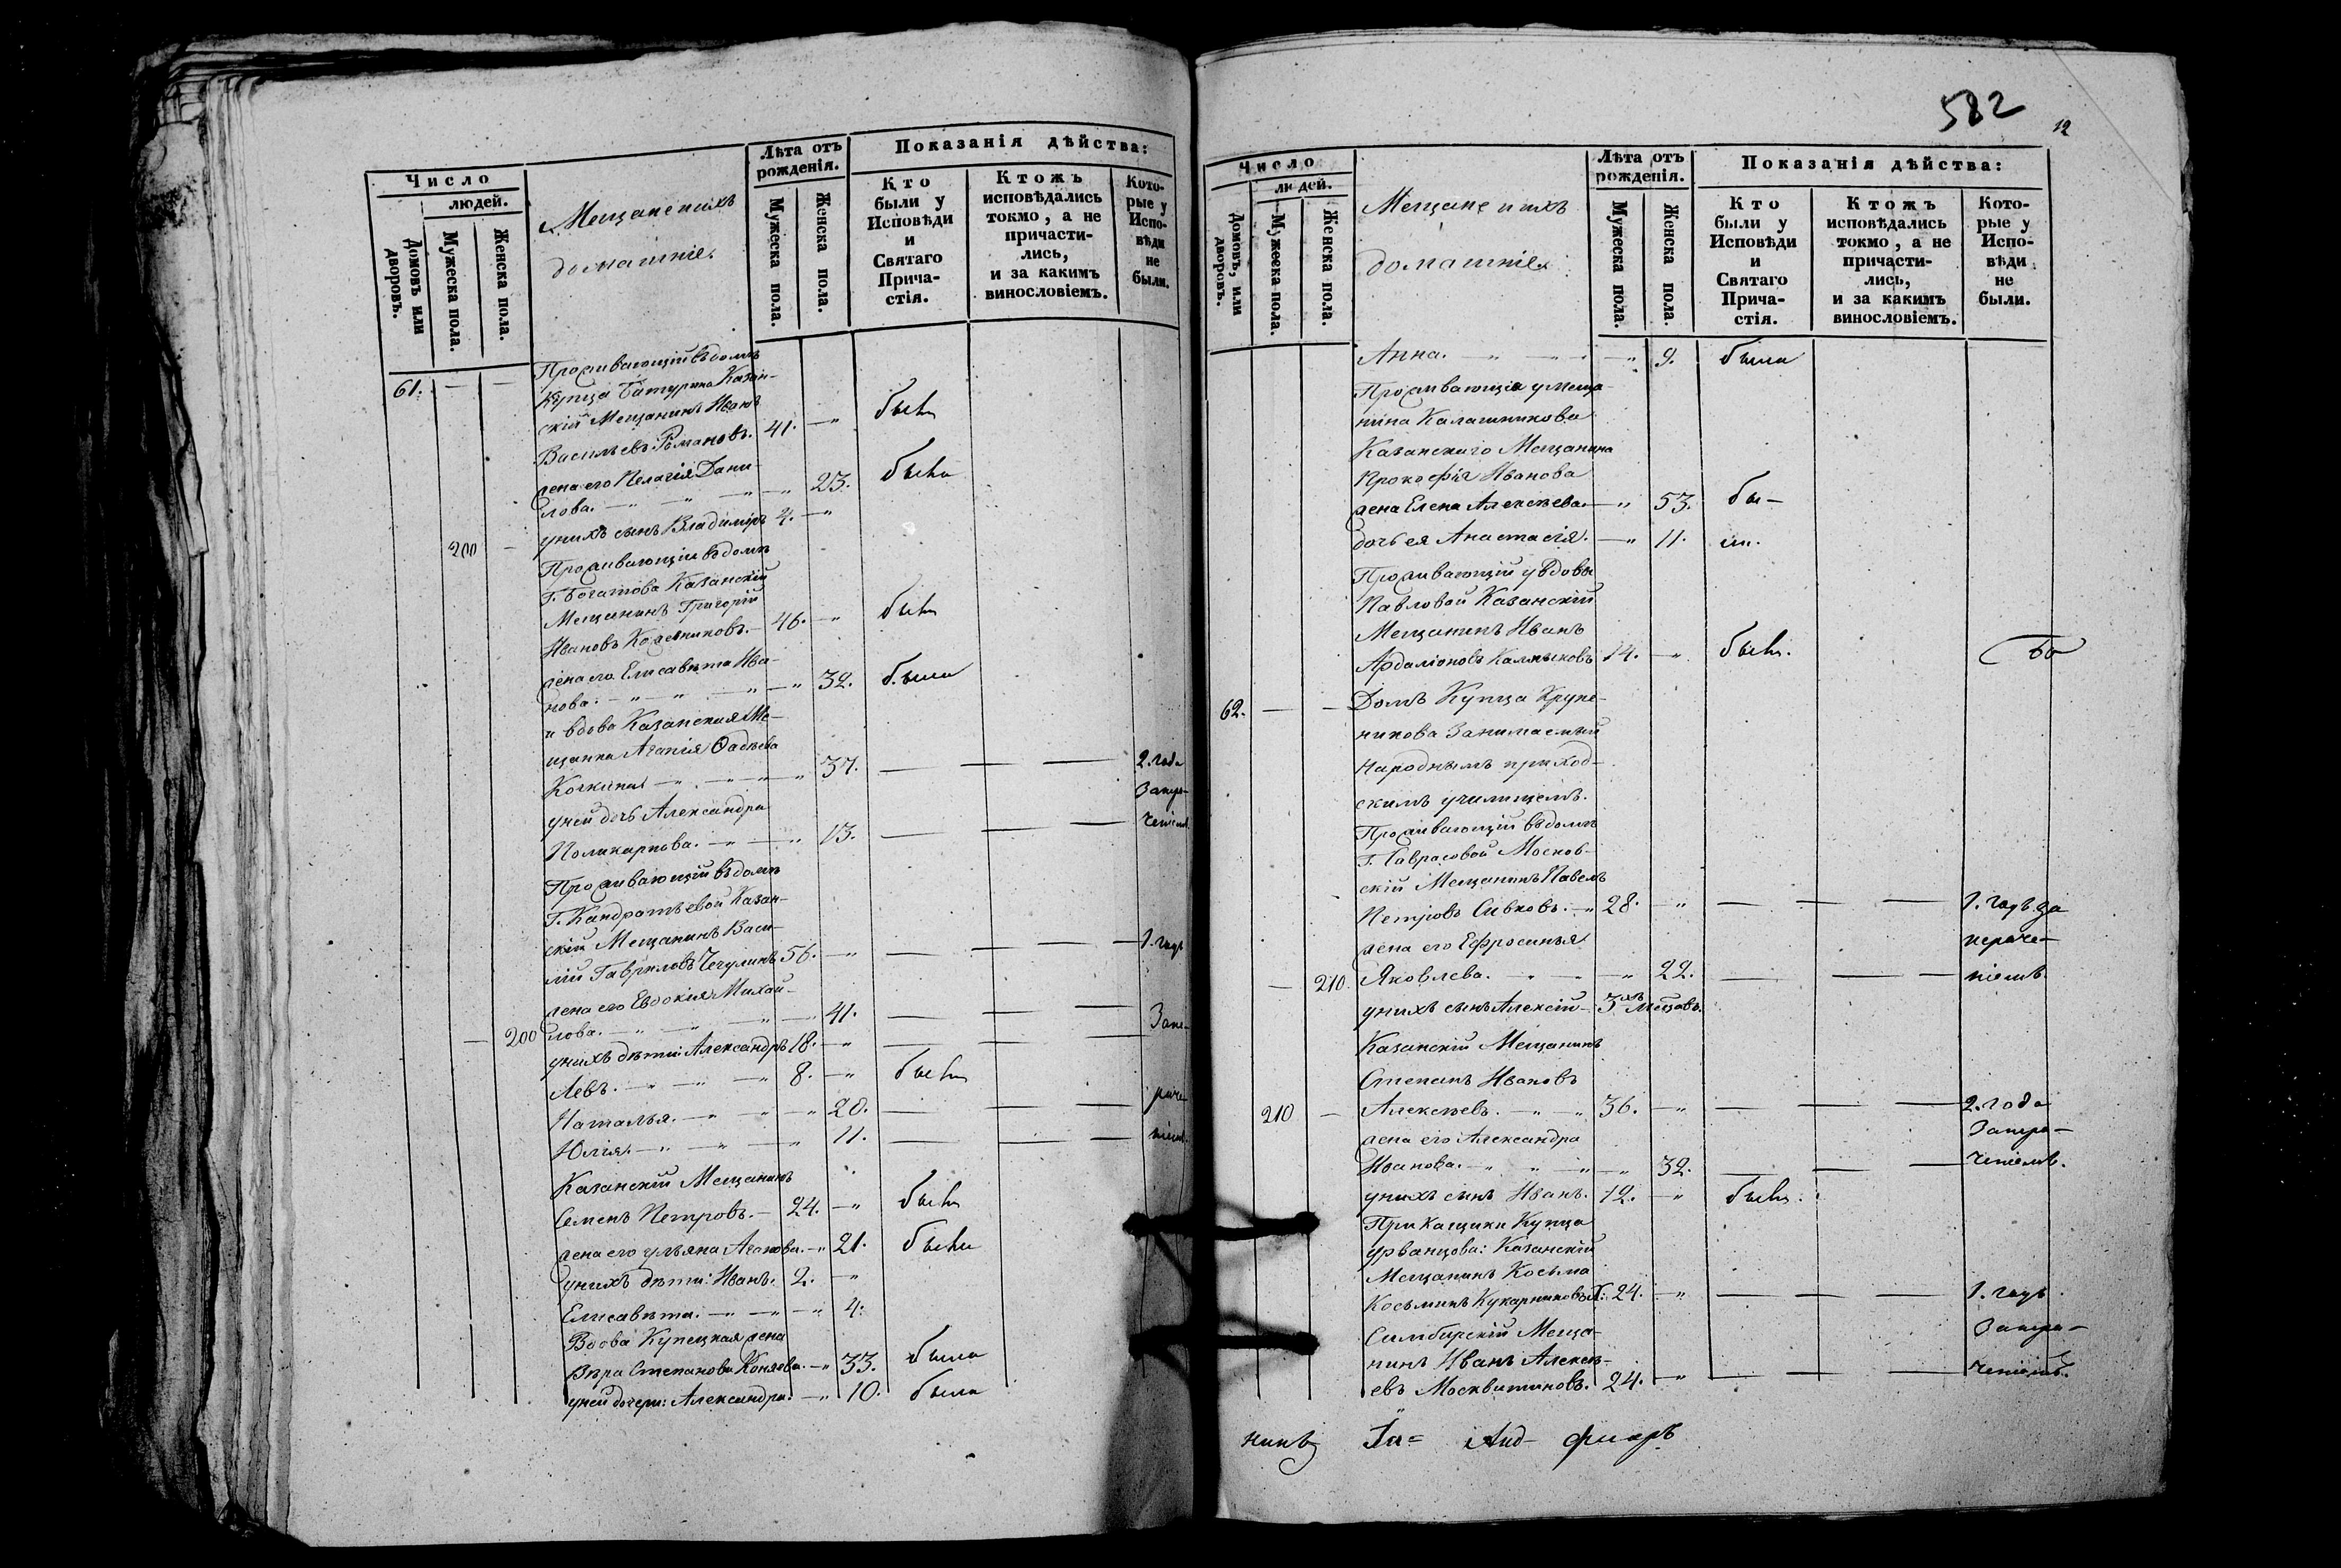 Число
людей.
Домовъ или дворовъ.
Мужеска пола.
Женска пола.
Мещане и ихъ
домашніе.
Лѣта отъ рожденія.
Мужеска пола.
Женска пола.
Показанія дѣйства:
Кто были у Исповѣди и Святаго Прича-стія.
Ктожъ исповѣдались токмо, а не причасти-лись, и за какимъ винословіемъ.
Кото-рые у Испо-вѣди не были.
Проживающій въ домѣ
61. — — Купца Батурина Казан-
скій Мещанинъ Иванъ
Васильевъ Романовъ. 41. — " былъ
жена его Пелагія Дани-
лова. — " — " — " 23. была
200 — у нихъ сынъ Владиміръ 4. — "
Проживающіи въ домѣ
Г. Богатова Казанскій
Мещанинъ Григорій
Ивановъ Колесниковъ. — 46. — " былъ
жена его Елисавета Ива-
нова. — " — " — " — " 32. была
и вдова Казанская Ме-
щанка Агапія Фадѣева
Кочкина — " — " — " 37. — — — 2. года
За нера-
у ней дочь Александра
Поликарпова. — " — " 13. — — — ченіемъ
Проживающій въ домѣ
Г. Кандратьевой Казан-
скій Мещанинъ Васи-
лій Гавриловъ Чегулинъ 56. — " — — — 1. годъ
жена его Евдокія Михай-
— 200 лова. — " — " — 41. — — — За не-
у нихъ дѣти: Александръ 18. — " — — —
Левъ. — " — " — " 8. — " былъ
Наталья. — " — " — " 20. — — — раче-
Юлія. — " — " — " 11. — — — ніемъ.
Казанскій Мещанинъ
Семенъ Петровъ. — 24. — " былъ
жена его Ульяна Агапова. — " 21. была
у нихъ дѣти: Иванъ. 2. — "
Елисавета. — " — " — " 4.
Вдова Купецкая жена
Вѣра Степанова Коняева. — " 33. была
у ней дочери: Александра. — " 10. была
582
12
Число
людей.
Домовъ, или дворовъ.
Мужеска пола.
Женска пола.
Мещане и ихъ
домашніе.
Лѣта отъ рожденія.
Мужеска пола.
Женска пола.
Показанія дѣйства:
Кто были у Исповѣди и Святаго Прича-стія.
Ктожъ исповѣдались токмо, а не причасти-лись, и за какимъ винословіемъ.
Кото-рые у Испо-вѣди не были.
Анна. — " — " 9. была
Проживающія у Меща-
нина Калашникова
Казанскаго Мещанина
Прокофія Иванова
жена Елена Алексѣева. — " 53. бы-
дочь ея Анастасія. — " 11. ли.
Проживающій у вдовы
Павловой Казанскій
Мещанинъ Иванъ
Ардаліоновъ Калмыковъ 14. — " былъ.
62. — — Домъ Купца Крупе-
никова Занимаемый
Народнымъ приход-
скимъ училищемъ.
Проживающій въ домѣ
Г. Таврасовой Москов-
скій Мещанинъ Павелъ
Петровъ Сивковъ. — " 28. — " — — — 1. годъ за
жена его Ефросинья нераче-
— 210. Яковлева. — " — " 22. — — — ніемъ.
у нихъ сынъ Алексій — 3хъ мѣсяцовъ.
Казанскій Мещанинъ
Степанъ Ивановъ
210 — Алексѣевъ. — " 36. — " — — — 2. года
жена его Александра За нера-
Иванова. — " — " 32. — — — ченіемъ.
у нихъ сынъ Иванъ. 12. — " былъ.
Прикащики Купца
Урванцова: Казанскій
Мещанинъ Косьма
Косьминъ Кукарниковъ 24. — " — — — 1. годъ.
Симбирскій Меща- За нера-
нинъ Иванъ Алексѣ-
евъ Москвитиновъ. 24. — " — — — ченіемъ.